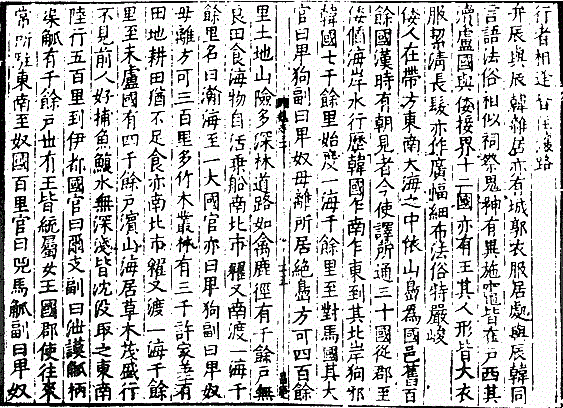 行者相逢皆住讓路
弁辰與辰韓雜居亦有城郭衣服居處與辰韓同
言語法俗相似祠祭鬼神有異施竈皆在戶西其
瀆盧國與倭接界十二國亦有王其人形皆大衣
服絜清長髮亦作廣幅細布法俗特嚴峻
倭人在帶方東南大海之中依山㠀為國邑舊百
餘國漢時有朝見者今使譯所通三十國從郡至
倭循海岸水行歷韓國乍南乍東到其北岸狗邪
韓國七千餘里始度一海千餘里至對馬國其大
官曰卑狗副曰卑奴母離所居絶㠀方可四百餘
里土地山險多深林道路如禽鹿徑有千餘戶無
良田食海物自活乗船南北市糴又南渡一海千
餘里名曰瀚海至一大國官亦曰卑狗副曰卑奴
母離方可三百里多竹木叢林有三千許家差有
田地耕田猶不足食亦南北市糴又渡一海千餘
里至末盧國有四千餘戶濱山海居草木茂盛行
不見前人好捕魚鰒水無深淺皆沈没取之東南
陸行五百里到伊都國官曰爾支副曰泄謨觚柄
渠觚有千餘戶丗有王皆統屬女王國郡使往來
常所駐東南至奴國百里官曰兕馬觚副曰卑奴